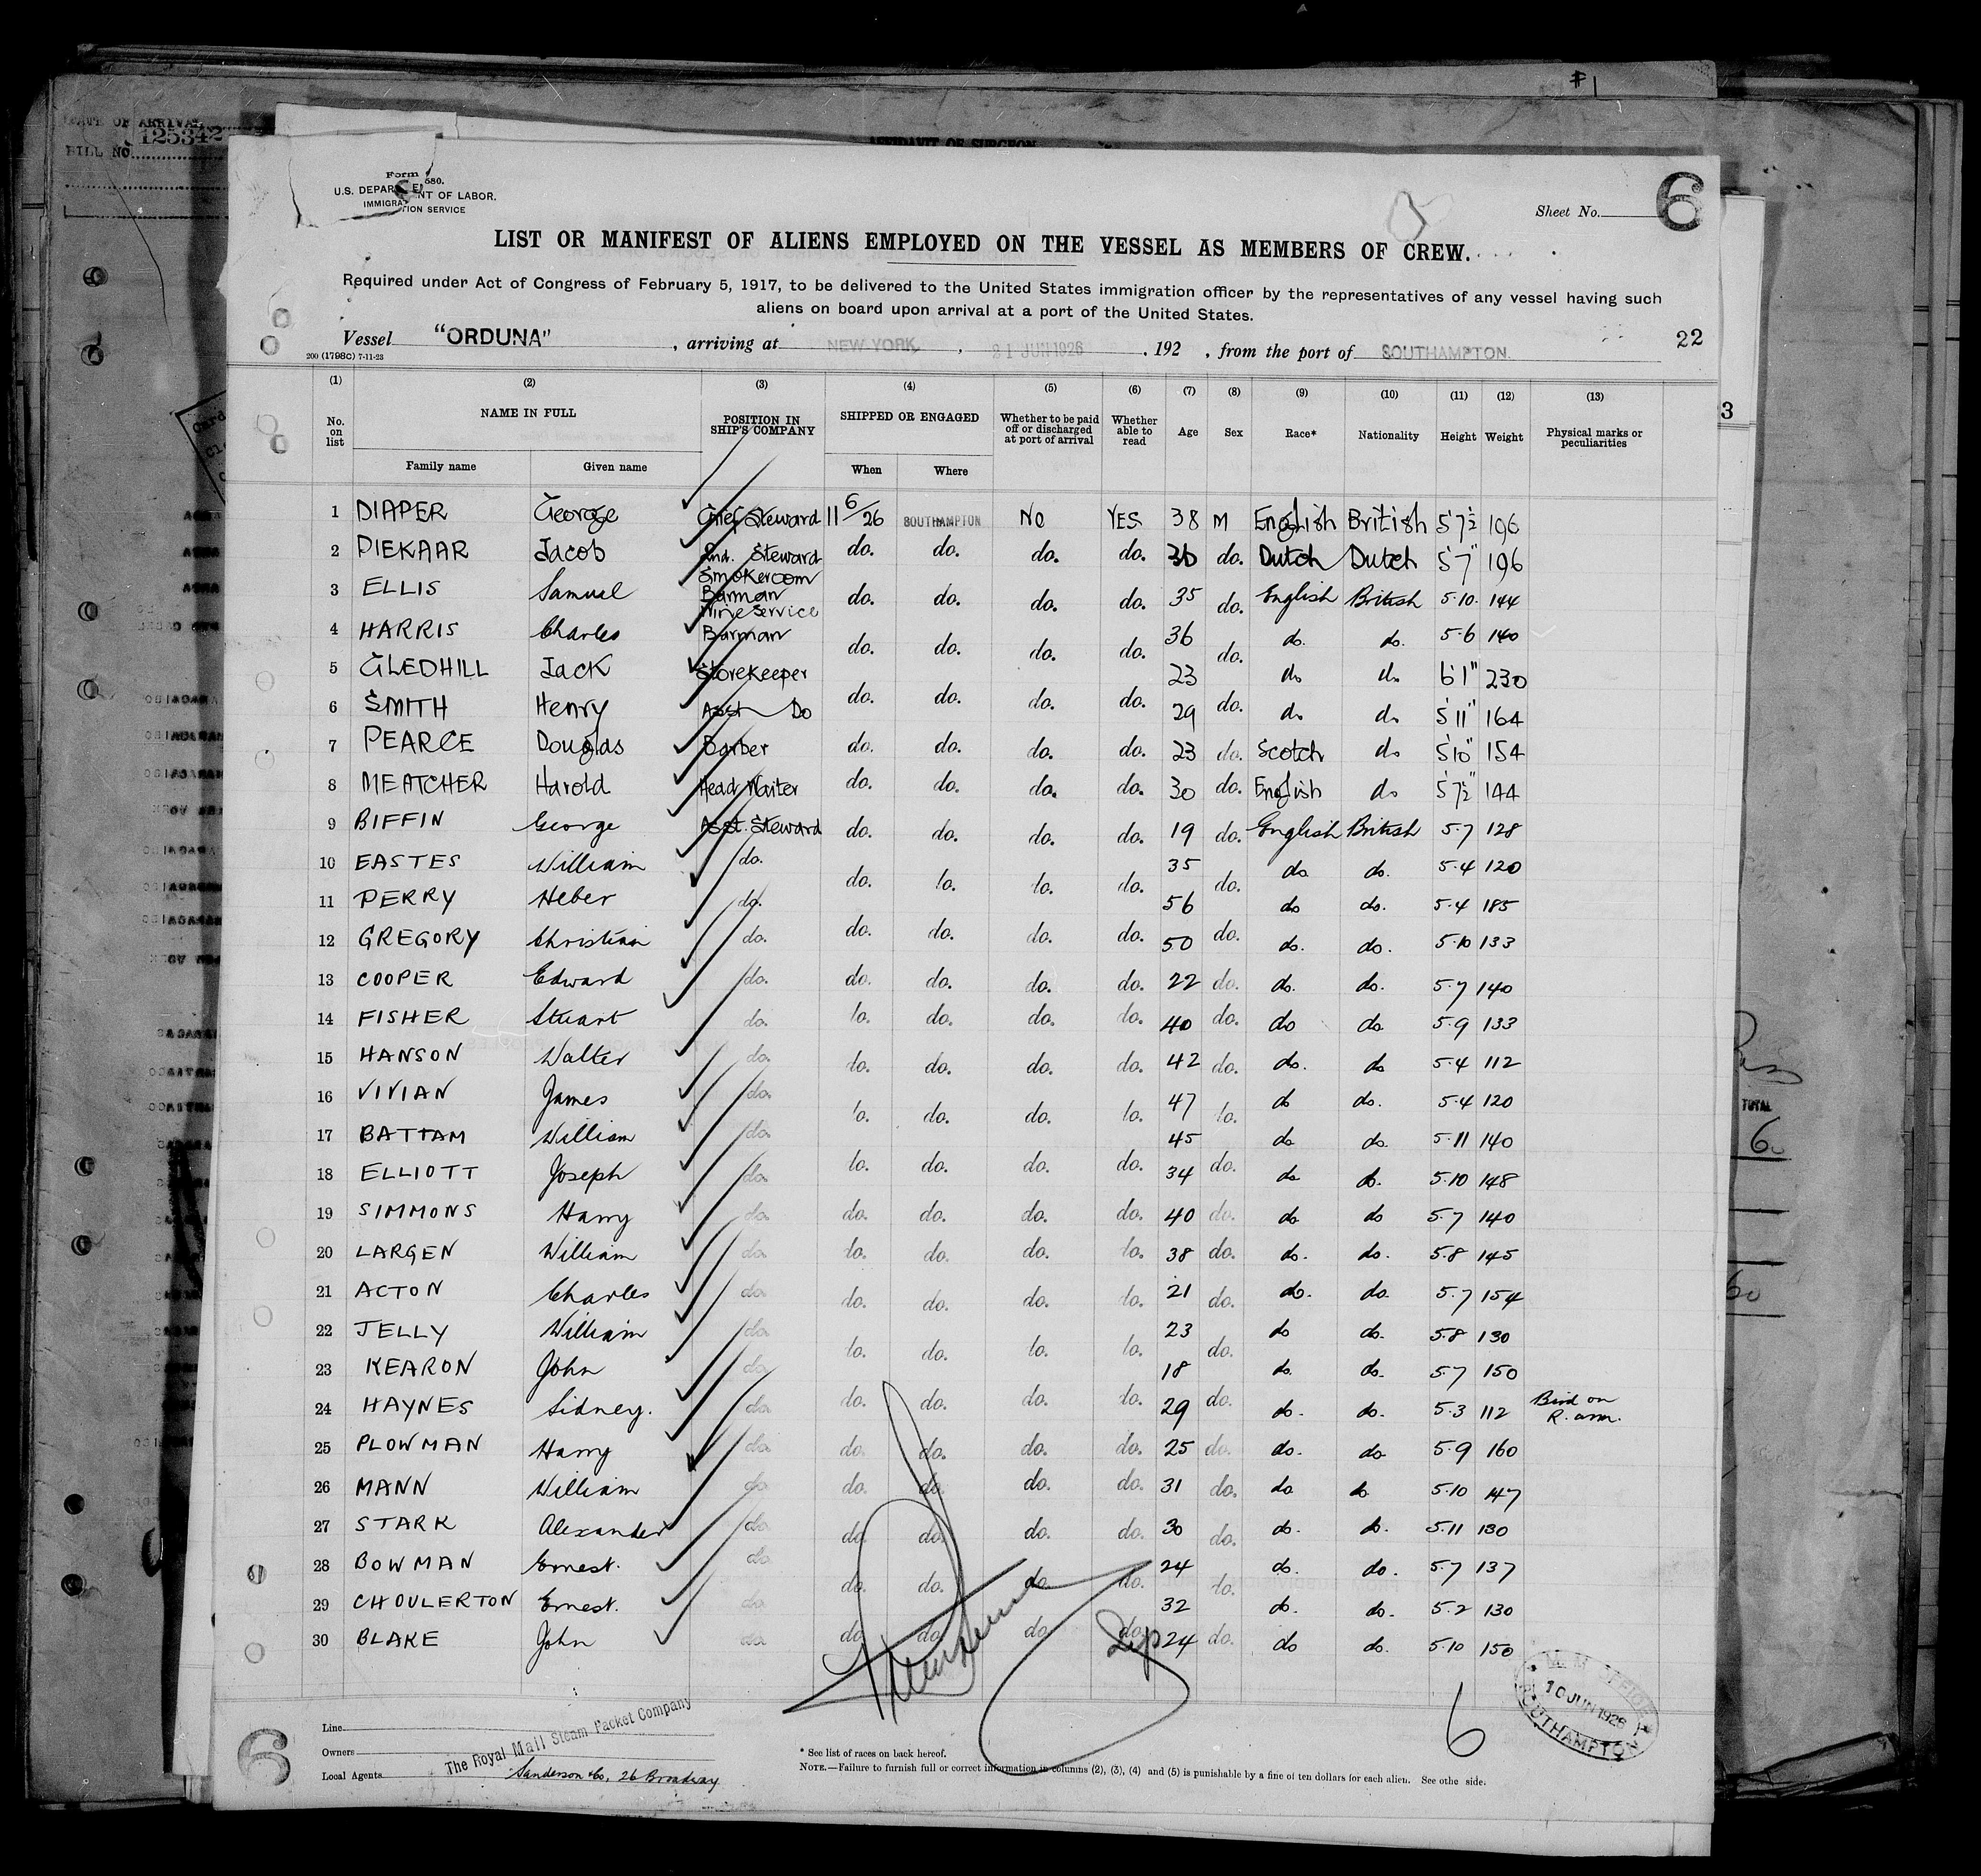 #1
DATE OF ARRIVAL
BILL NO. 125342
AFFIDAVIT OF SURGEON
Form 680.
U.S. DEPARTMENT OF LABOR.
IMMIGRATION SERVICE
Sheet No. 6
LIST OR MANIFEST OF ALIENS EMPLOYED ON THE VESSEL AS MEMBERS OF CREW.
Required under Act of Congress of February 5, 1917, to be delivered to the United States immigration officer by the representatives of any vessel having such
aliens on board upon arrival at a port of the United States.
Vessel "ORDUNA", arriving at NEW YORK, 21 JUN 1926, 192 , from the port of SOUTHAMPTON. 22
200 (1798C) 7-11-23
(1) (2) (3) (4) (5) (6) (7) (8) (9) (10) (11) (12) (13)
No. on list NAME IN FULL POSITION IN SHIP'S COMPANY SHIPPED OR ENGAGED Whether to be paid off or discharged at port of arrival Whether able to read Age Sex Race* Nationality Height Weight Physical marks or peculiarities
Family name Given name When Where
1 DIAPER George Chief Steward 11 6/26 SOUTHAMPTON NO YES 38 M English British 5'7½ 196
2 PIEKAAR Jacob 2nd. Steward do. do. do. do. 36 do. Dutch Dutch 5'7" 196
3 ELLIS Samuel Smokeroom Barman do. do. do. do. 35 do. English British 5.10. 144
4 HARRIS Charles Wine Service Barman do. do. do. do. 36 do. do. do. 5.6 140
5 GLEDHILL Jack Storekeeper 23 do do 6'1" 230
6 SMITH Henry Asst Do do. do. do. do. 29 do. do do 5'11" 164
7 PEARCE Douglas Barber do. do. do. do. 23 do. Scotch do 5'10" 154
8 MEATCHER Harold Head Waiter do. do. do. do. 30 do. English do 5'7½" 144
9 BIFFIN George Asst. Steward do. do. do. do. 19 do. English British 5.7 128
10 EASTES William do. 35 do do. 5.4 120
11 PERRY Heber do. do. lo. lo. do. 56 do. do do. 5.4 185
12 GREGORY Christian do. do. do. do. do. 50 do. do. do. 5.10 133
13 COOPER Edward do. do. do. do. do. 22 do. do. do. 5.7 140
14 FISHER Stuart do. lo. do. do. do. 40 do. do do 5.9 133
15 HANSON Walter do. lo. do. do. do. 42 do. do. do 5.4 112
16 VIVIAN James do. lo. do. do. lo. 47 lo. do do. 5.4 120
17 BATTAM William do. 45 do do. 5.11 140
18 ELLIOTT Joseph do. lo. do. do. do. 34 do. do do. 5.10 148
19 SIMMONS Harry do. do. do. do. do. 40 do. do do 5.7 140
20 LARGEN William do. lo. do. do. lo. 38 do. do. do. 5.8 145
21 ACTON Charles do. do. do. do. lo. 21 do. do. do. 5.7 154
22 JELLY William do. 23 do do. 5.8 130
23 KEARON John do. lo. do. lo. lo. 18 do. do. do. 5.7 150
24 HAYNES Sidney. do. do. do. do. do. 29 do. do. do. 5.3 112 Bird on R. arm.
25 PLOWMAN Harry do. do. do. do. do. 25 do. do. do 5.9 160
26 MANN William do. do. do. do. do. 31 do. do do 5.10 147
27 STARK Alexander do. do. do. do. do. 30 do. do. do. 5.11 130
28 BOWMAN Ernest. do. 24 do. do. 5.7 137
29 CHOULERTON Ernest. do. do. do. do. do. 32 do. do. do. 5.2 130
30 BLAKE John do. do. do. do. do. 24 do. do do. 5.10 150
6
10 JUN 1926
SOUTHAMPTON
6
Line
Owners The Royal Mail Steam Packet Company
Local Agents Sanderson & Co, 26 Broadway
* See list of races on back hereof.
NOTE.—Failure to furnish full or correct information in columns (2), (3), (4) and (5) is punishable by a fine of ten dollars for each alien. See othe side.
3
TOTAL
6
60